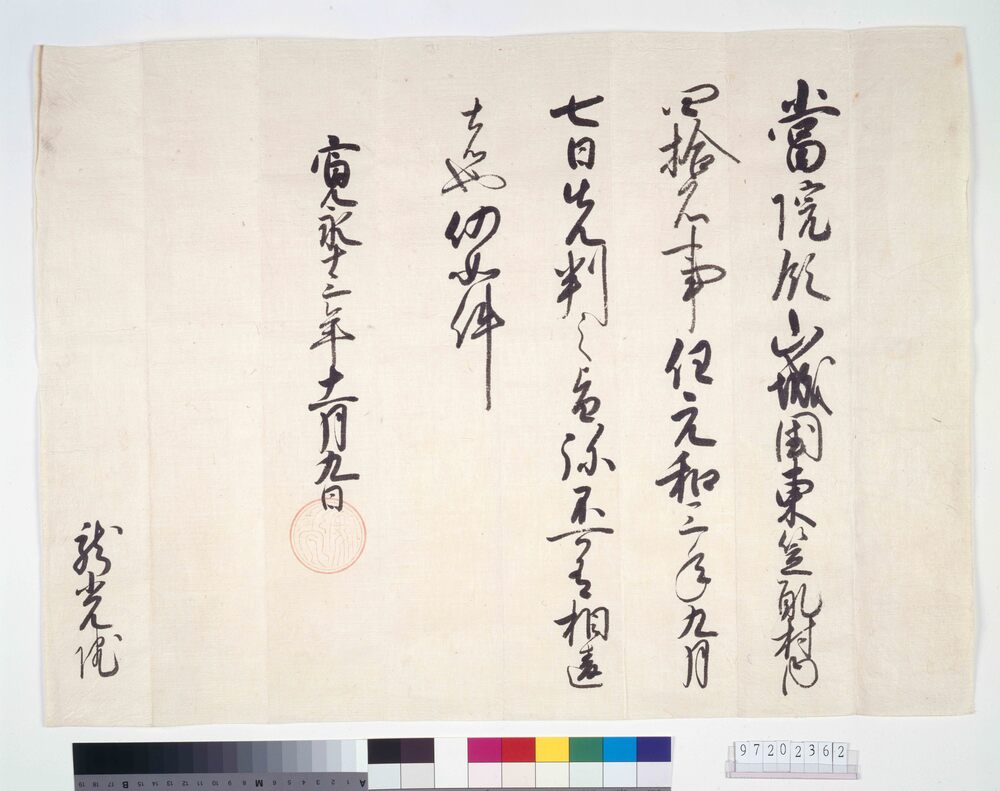 當院領山城国東笠取村内
四拾石事任元和三年九月
七日先判之旨弥不可有相違
者也仍如件
寛永十三年十一月九日
龍光院
97202362
A 1 2 3 4 5 6 M 8 9 10 11 12 13 14 B 15 16 17 18 19